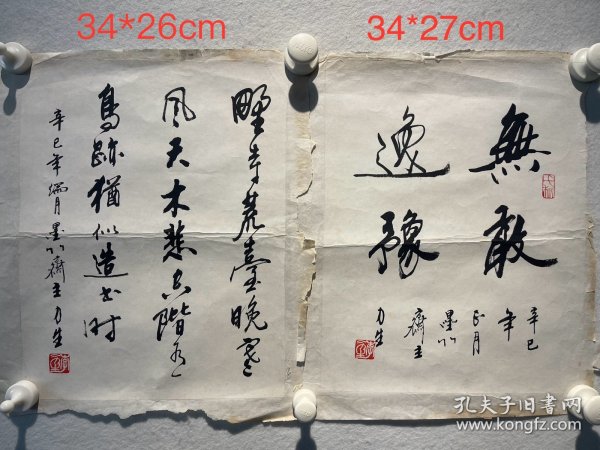 34*26cm
34*27cm
無敢
逸豫
辛巳
年
正月
墨
齋主
力生
野寺荒臺晚寒
風天木悲空階有
鳥跡猶似造書時
辛巳年端月墨齋主力生
孔夫子旧书网
www.kongfz.com